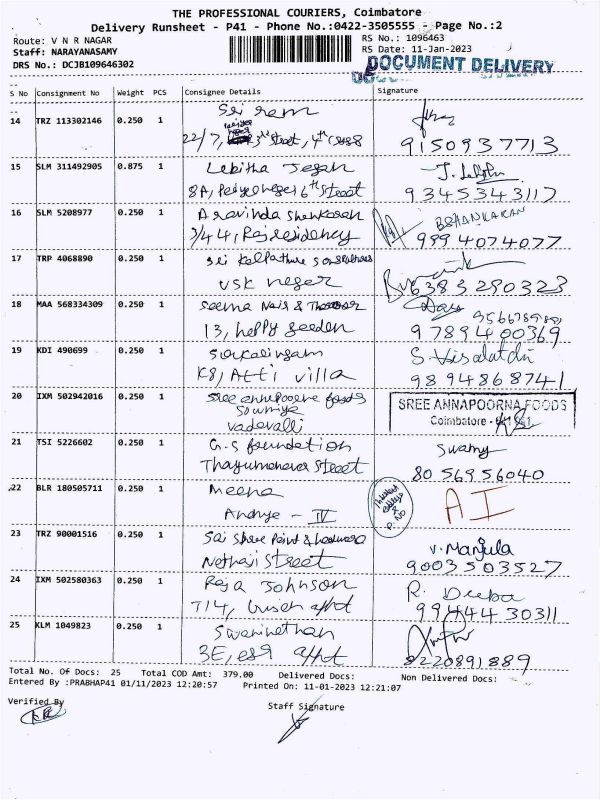 THE PROFESSIONAL COURIERS, Coimbatore
Delivery Runsheet - P41 - Phone No.:0422-3505555 - Page No.:2
Route: V N R NAGAR
RS No.: 1096463
Staff: NARAYANASAMY
RS Date: 11-Jan-2023
DRS No.: DCJB109646302
DOCUMENT DELIVERY
S No Consignment No Weight PCS Consignee Details Signature
14 TRZ 113302146 0.250 1 Sri ram
22/7, 3rd Street, 4th cross
9150937713
15 SLM 311492905 0.875 1 Lekitha Jegan
8A, 6th Street
9345343117
16 SLM 5208977 0.250 1 Aravinda Shankaran B SHANKARAN
3/44, Raj residency 9994074077
17 TRP 4068890 0.250 1 Sri
VSK nager 6383290323
18 MAA 568334309 0.250 1 Seema Nair &
13, happy garden 9789400369
19 KDI 490699 0.250 1
K8, Atti villa 9894868741
20 IXM 502942016 0.250 1 Sree annapoorna foods SREE ANNAPOORNA FOODS
Sowmiya Coimbatore -
vadavalli
21 TSI 5226602 0.250 1 G.S foundation Swamy
Street 8056956040
22 BLR 180505711 0.250 1 Meena AI
- IV
23 TRZ 90001516 0.250 1 Sai Shree Paint & V. Manjula
Nethaji Street 9003503527
24 IXM 502580363 0.250 1 Raja Johnson R. Deeba
T14, 9944430311
25 KLM 1049823 0.250 1 Swaminathan
3E, 8220891889
Total No. Of Docs: 25 Total COD Amt: 379.00 Delivered Docs: Non Delivered Docs:
Entered By :PRABHAP41 01/11/2023 12:20:57 Printed On: 11-01-2023 12:21:07
Verified By Staff Signature